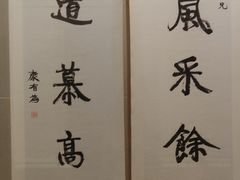 兄
風采餘
道慕高
康有為